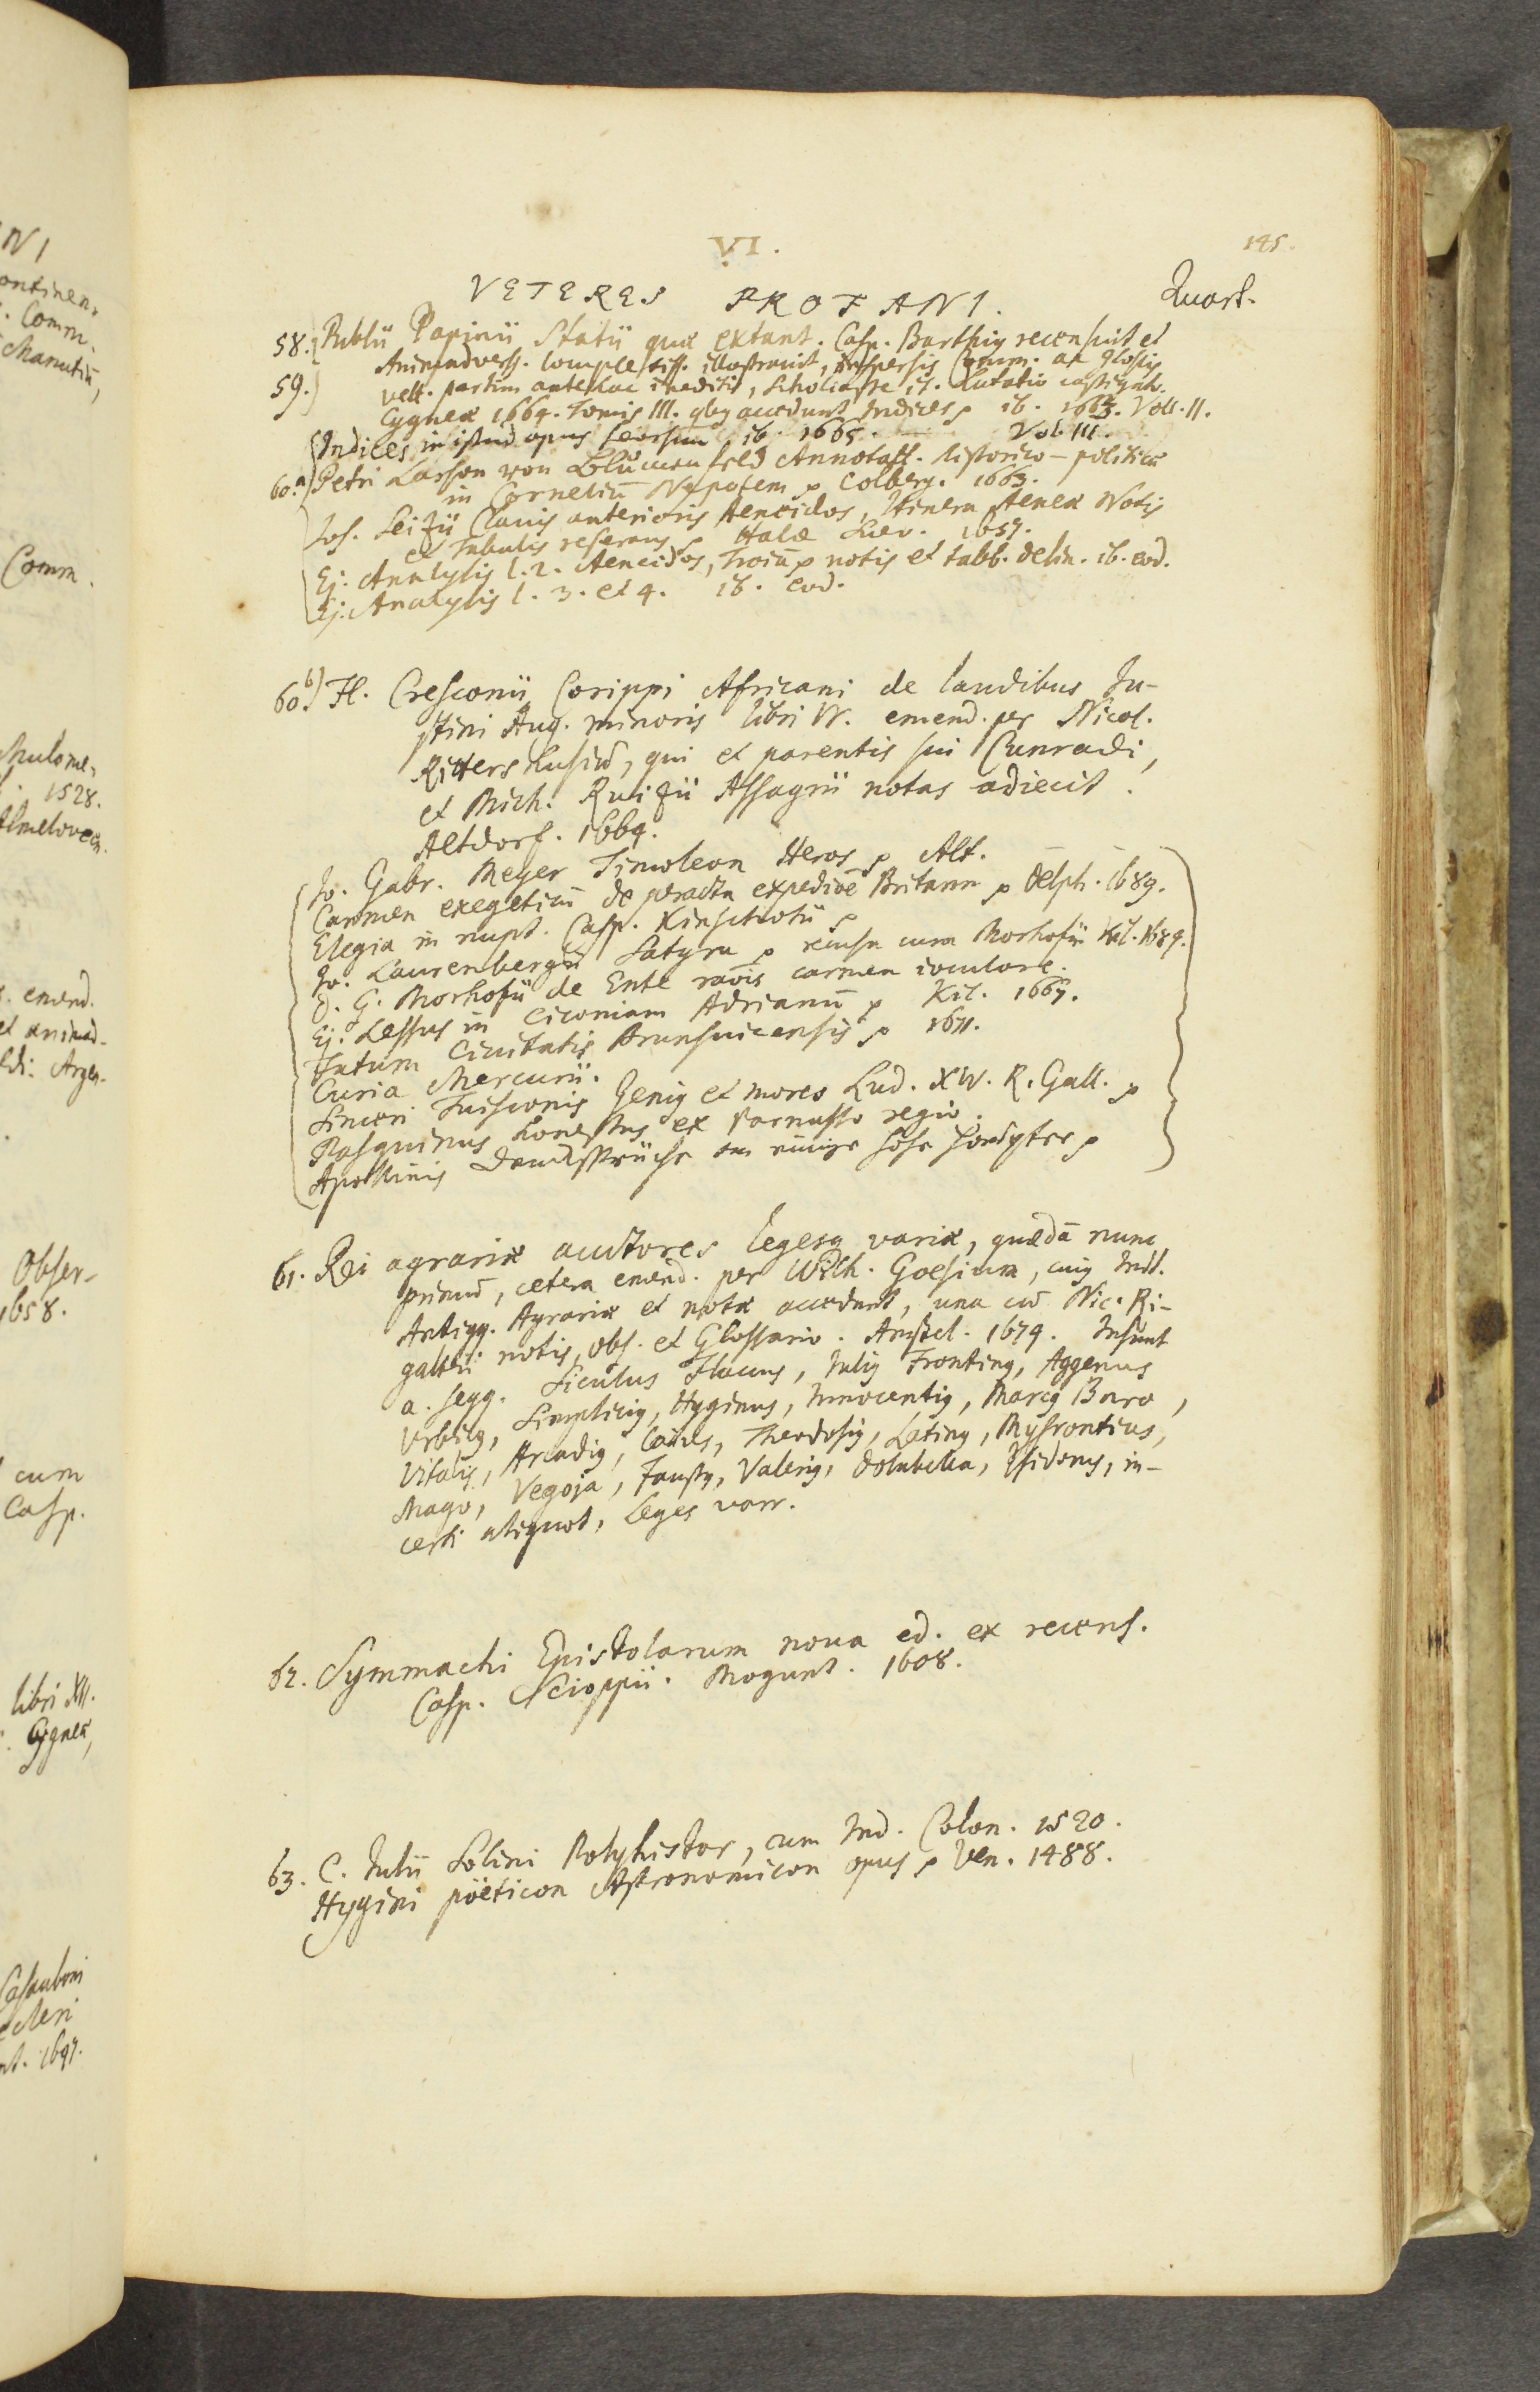 VI.
145.
VETERES PROFANI.
Quart.
58. Publii Papinii Statii quæ extant. Casp. Barthig recensuit et
Animadverss. locupletiss. illustravit, inspersis Comm. ac glossis
59. vett. partim antehac ineditis, Scholiaste it. Lutatio castigato.
Cygneæ 1664. Tomis III. qbg accedunt Indices ib. 1664. Voll. II.
Indices in istud opus seorsim ib. 1665. Vol. III.
60.a) Petri Lasson von Blumenfeld Annotatt. historico-politicæ
in Cornelium Nepotem p Colberg. 1663.
Jos. Seizii Clavis anterioris Aeneidos, Itinera Aeneæ Notis
et Tabulis reserans p Halæ Suev. 1657.
Ej. Analysis l. 2. Aeneidos, Troiā p notis et tabb. delin. ib. eod.
Ej. Analysis l. 3. et 4. ib. eod.
60.b) Fl. Cresconii Corippi Africani de laudibus Ju-
stini Aug. minoris libri IV. emend. per Nicol.
Rittershusiū, qui et parentis sui Cunradi,
et Mich. Ruizii Assagrii notas adiecit.
Altdorf. 1664.
Jo. Gabr. Meyer Timoleon Heros p Alt.
Carmen exegeticū de peracta expediōe Britann p Delph. 1689.
Elegia in nupt. Casp. Kinschotii p
Jo. Laurenbergii Satyra p recusa cura Morhofii Kil. 1684.
D. G. Morhofii de Ente raōis carmen ioculare.
Ej. Lessus in Ciconiam Adrianū p Kil. 1667.
Fatum Civitatis Brunsuicensis p 1671.
Curia Mercurii.
Sinceri Tuisconis Genig et mores Lud. XIV. R. Gall. p
Pasquinus honestus ex Parnasso regio.
Apollinis Denksprüche an einige hohe Häupter p
61. Rei agrariæ auctores legesq variæ, quædā nunc
primū, cetera emend. per Wilh. Goesium, cuig Indd.
Antiqq. Agrariæ et notæ accedunt, una cū Nic. Ri-
galtii notis, obs. et Glossario. Amstel. 1674. Insunt
a. seqq. Siculus Flaccus, Julig Fronting, Aggenus
Urbicg, Simplicig, Hyginus, Innocentig, Marcg Baro,
Vitalis, Arcadig, Caius, Theodosig, Lating, Mysrontius,
Mago, Vegoja, Faustg, Valerig, Dolabella, Isidorus, in-
certi aliquot, Leges varr.
62. Symmachi Epistolarum nova ed. ex recens.
Casp. Scioppii. Mogunt. 1608.
63. C. Julii Solini Polyhistor, cum Ind. Colon. 1520.
Hygini pöeticon Astronomicon opus p Ven. 1488.
NI
ontinen-
. Comm.
Manutiū,
Comm.
Mulome-
1528.
Almeloveen.
. emend.
et animad-
Argen-
Obser-
1658.
cum
Casp.
libri XII.
Cygneæ,
Casauboni
1697.